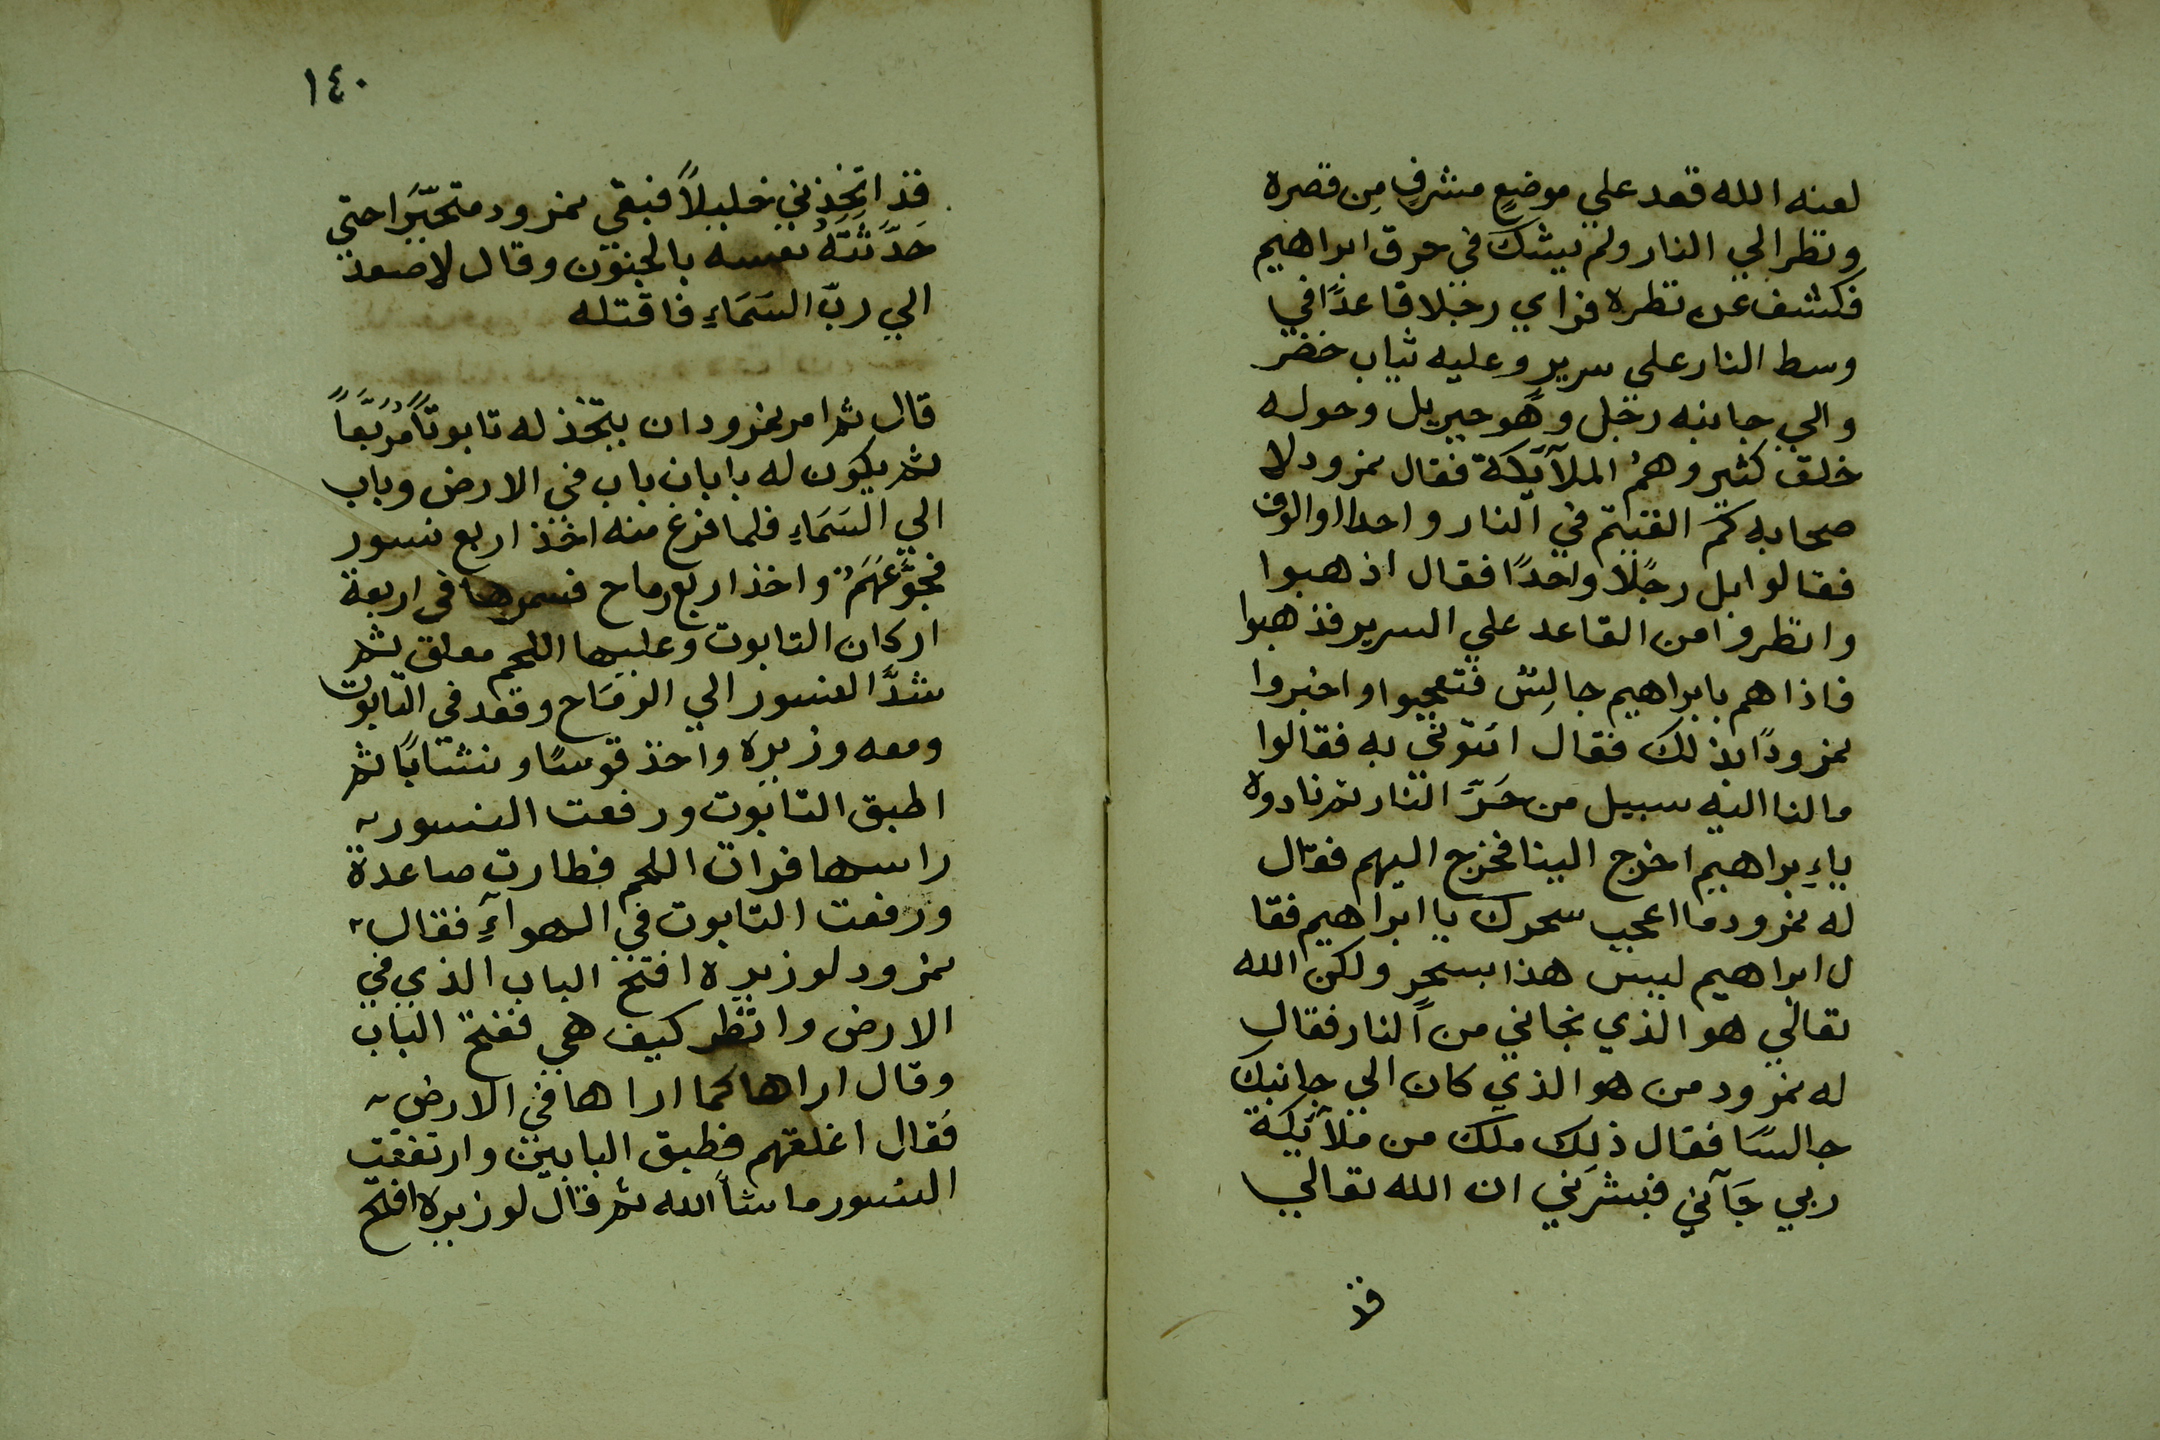 لعنه الله قعد علي موضعٍ مشرفٍ مِن قصره
ونظر الي النار ولم يشك في حرق ابراهيم
فكشف عن نظره فراي رجلا قاعدًا في
وسط النار علي سريرٍ وعليه ثياب خضر
والي جانبه رجل وهو جبريل وحوله
خلق كثير وهم الملآئكة فقال نمرود لا
صحابه كم القيتم في النار واحدا او الوف
فقالوا بل رجلًا واحدًا فقال اذهبوا
وانظروا من القاعد علي السرير فذهبوا
فاذاهم بابراهيم جالِسٌ فتعجبوا واخبروا
نمرودًا بذلك فقال ائتوني به فقالوا
مالنا اليه سبيل من حَرّ النار ثم نادوه
ياءِبراهيم اخرج الينا فخرج اليهم فقال
له نمرود ما اعجب سحرك يا ابراهيم فقا
ل ابراهيم ليس هذا بسحرٍ ولكن الله
تعالي هو الذي نجاني من النار فقال
له نمرود من هو الذي كان الي جانبك
جالسًا فقال ذلك ملك من ملآئكة
ربي جَآني فبشرني ان الله تعالي
قد
١٤٠
قد اتخِذني خليلاً فبقي نمرود متحيّرَا حتي
حَدَّثَتَهُ نفسه بالجنون وقال لاصعد
الي ربّ السَمَاءِ فاقتله
قال ثم امر نمرود ان يتخذ له تابوتاً مُرَبَّعاً
ثم يكون له بابان باب في الارض وباب
الي السَمَاءِ فلما فرغ منه اخذ اربع نسور
فجوَّعَهَمَ واخذ اربع رماح فسمرها في اربعة
اركان التابوت وعليها اللحم معلق ثم
شدَّ النسور الي الرمَاح وقعد في التابوت
ومعه وزيره واخذ قوسًا ونشابًا ثم
اطبق التابوت ورفعت النسور
راسها فرات اللحم فطارت صاعدة
ورفعت التابوت في الهوآءِ فقال
نمرود لوزيره افتح الباب الذي في
الارض وانظر كيف هي ففتح الباب
وقال اراها كما اراها في الارض
فقال اغلقهم فطبق البابين وارتفعت
النسور ماشاً الله ثم قال لوزيره افتح